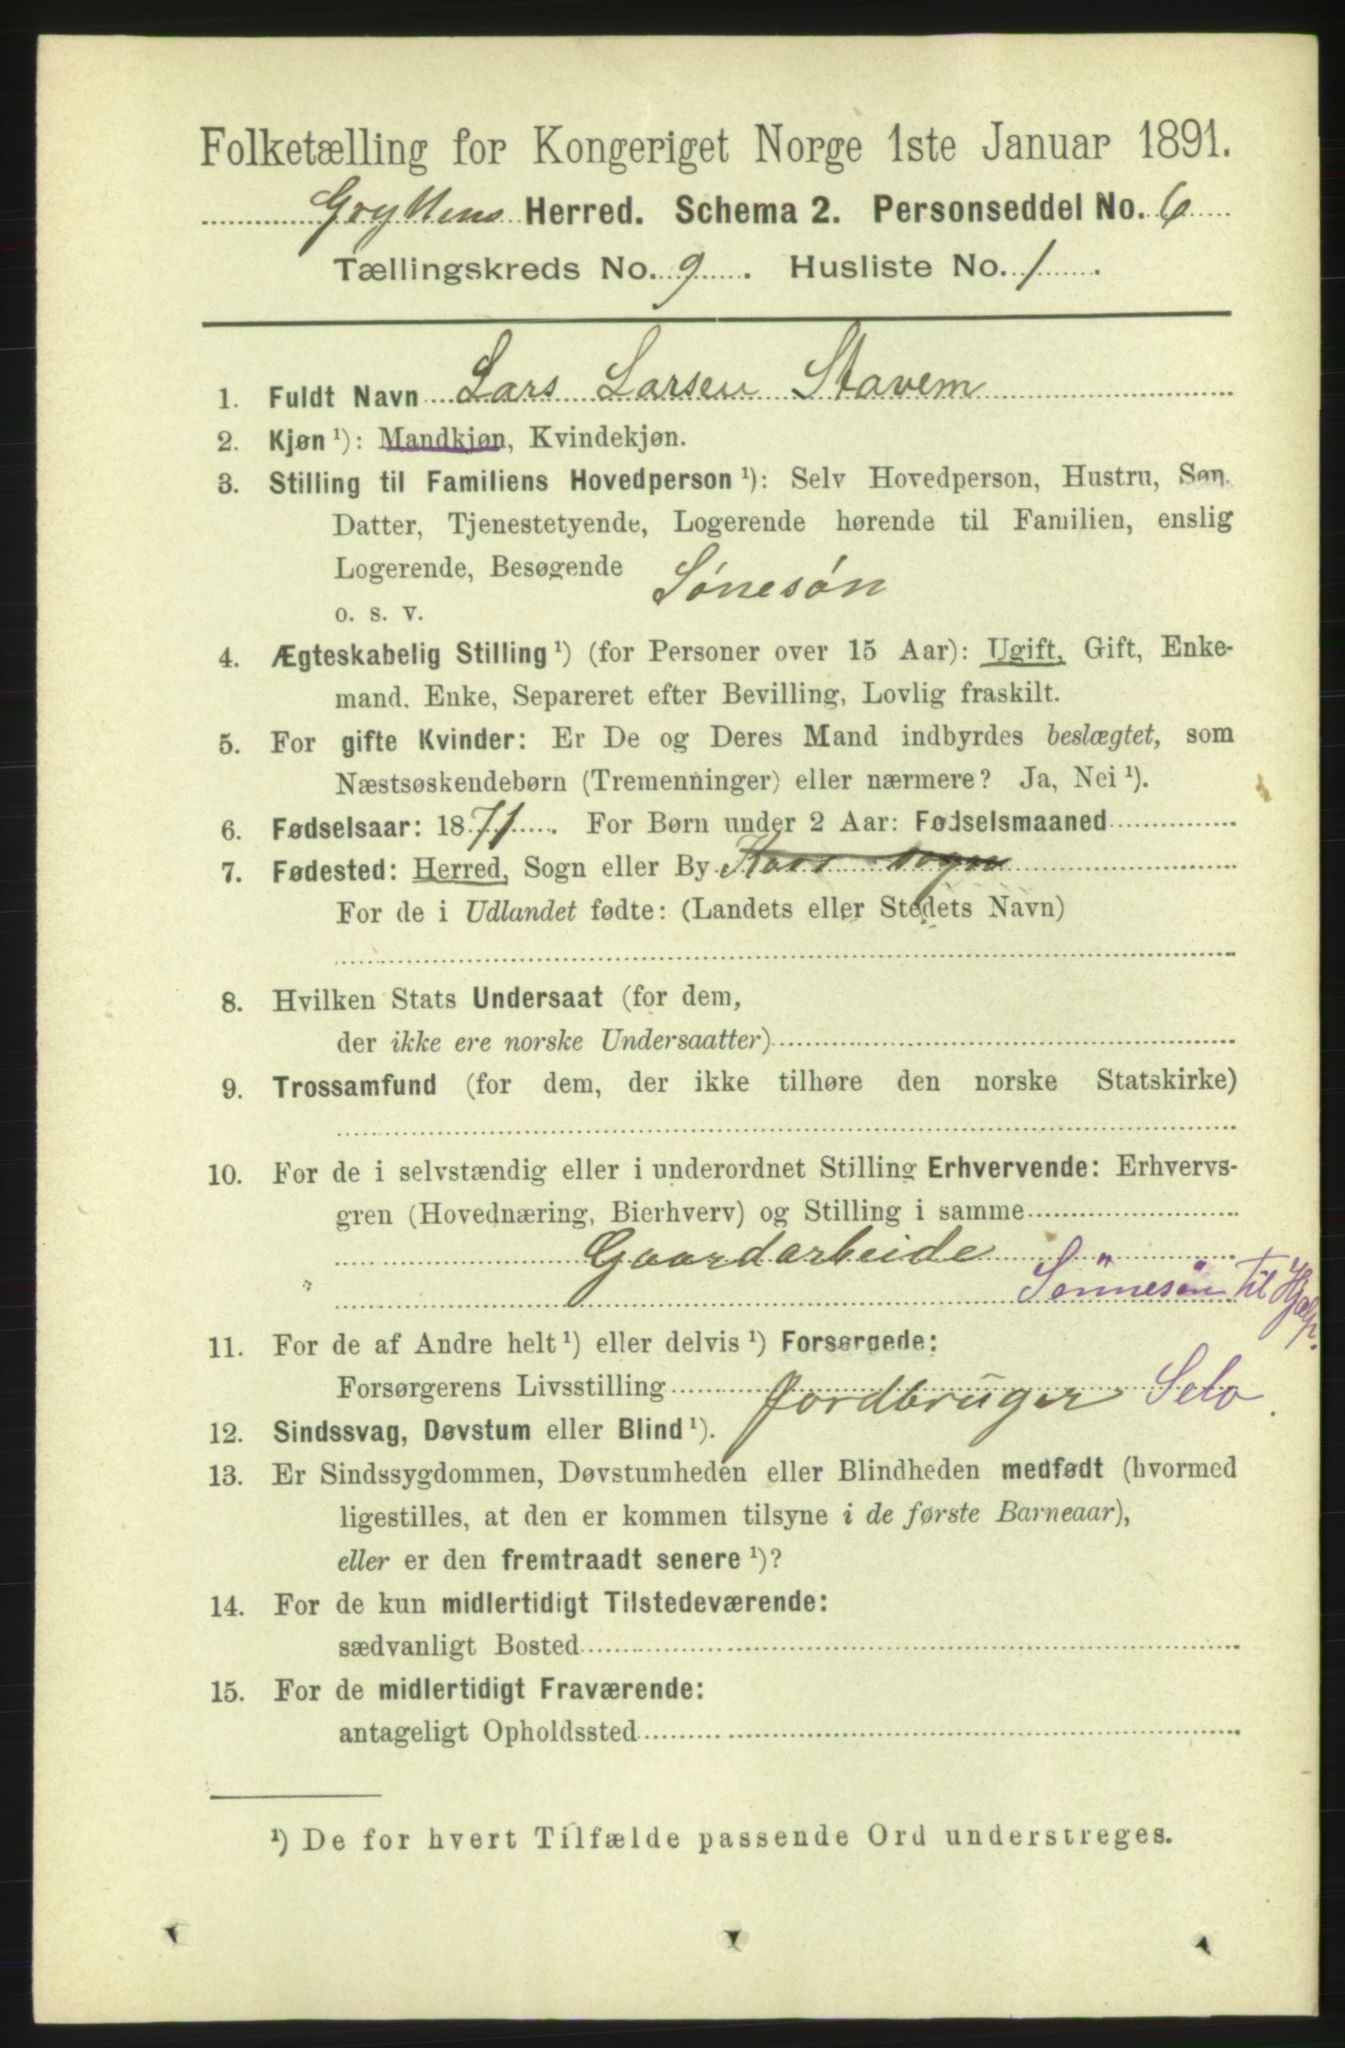 Folketælling for Kongeriget Norge 1ste Januar 1891.
Gryttens Herred. Schema 2. Personseddel No. 6
Tællingskreds No. 9. Husliste No. 1.
1. Fuldt Navn Lars Larsen Stavem
2. Kjøn ¹): Mandkjøn, Kvindekjøn.
3. Stilling til Familiens Hovedperson ¹): Selv Hovedperson, Hustru, Søn,
Datter, Tjenestetyende, Logerende hørende til Familien, enslig
Logerende, Besøgende Sønesøn
o. s. v.
4. Ægteskabelig Stilling ¹) (for Personer over 15 Aar): Ugift, Gift, Enke-
mand, Enke, Separeret efter Bevilling, Lovlig fraskilt.
5. For gifte Kvinder: Er De og Deres Mand indbyrdes beslægtet, som
Næstsøskendebørn (Tremenninger) eller nærmere? Ja, Nei ¹).
6. Fødselsaar: 1871. For Børn under 2 Aar: Fødselsmaaned
7. Fødested: Herred, Sogn eller By Kors sogn
For de i Udlandet fødte: (Landets eller Stedets Navn)
8. Hvilken Stats Undersaat (for dem,
der ikke ere norske Undersaatter)
9. Trossamfund (for dem, der ikke tilhøre den norske Statskirke)
10. For de i selvstændig eller i underordnet Stilling Erhvervende: Erhvervs-
gren (Hovednæring, Bierhverv) og Stilling i samme
Gaardarbeide
" Sønnesøn til Hjælp.
11. For de af Andre helt ¹) eller delvis ¹) Forsørgede:
Forsørgerens Livsstilling Jordbruger Selv.
12. Sindssvag, Døvstum eller Blind ¹).
13. Er Sindssygdommen, Døvstumheden eller Blindheden medfødt (hvormed
ligestilles, at den er kommen tilsyne i de første Barneaar),
eller er den fremtraadt senere ¹)?
14. For de kun midlertidigt Tilstedeværende:
sædvanligt Bosted
15. For de midlertidigt Fraværende:
antageligt Opholdssted
¹) De for hvert Tilfælde passende Ord understreges.